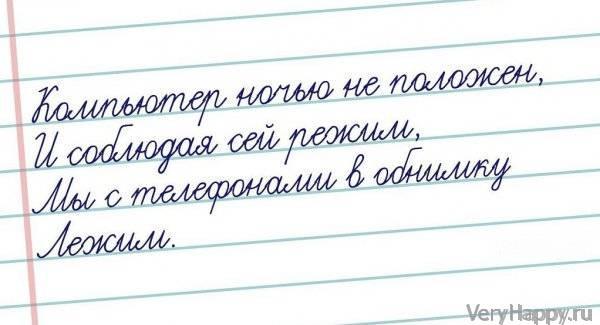 Компьютер ночью не положен,
И соблюдая сей режим,
Мы с телефонами в обнимку
Лежим.
VeryHappy.ru